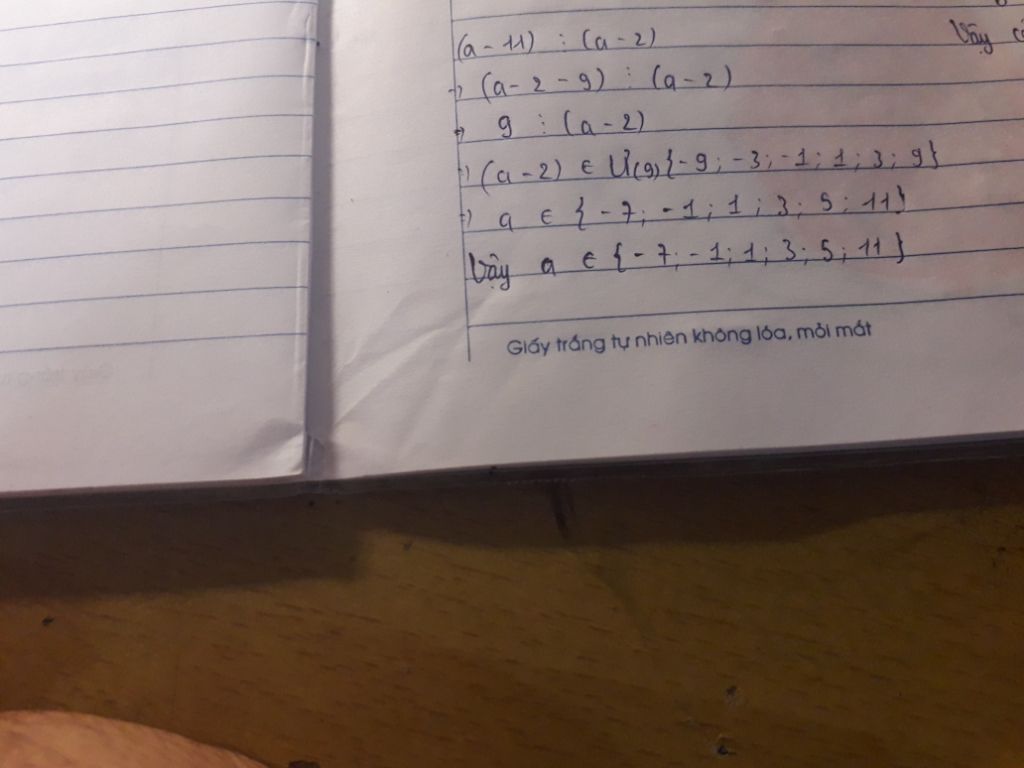 (a - 11) ⋮ (a - 2)
Vậy
=) (a - 2 - 9) ⋮ (a - 2)
=) 9 ⋮ (a - 2)
=) (a - 2) ∈ Ư(9){- 9; - 3; - 1; 1; 3; 9}
=) a ∈ { - 7; - 1; 1; 3; 5; 11}
Vậy a ∈ {- 7; - 1; 1; 3; 5; 11}
Giấy trắng tự nhiên không lóa, mỏi mắt